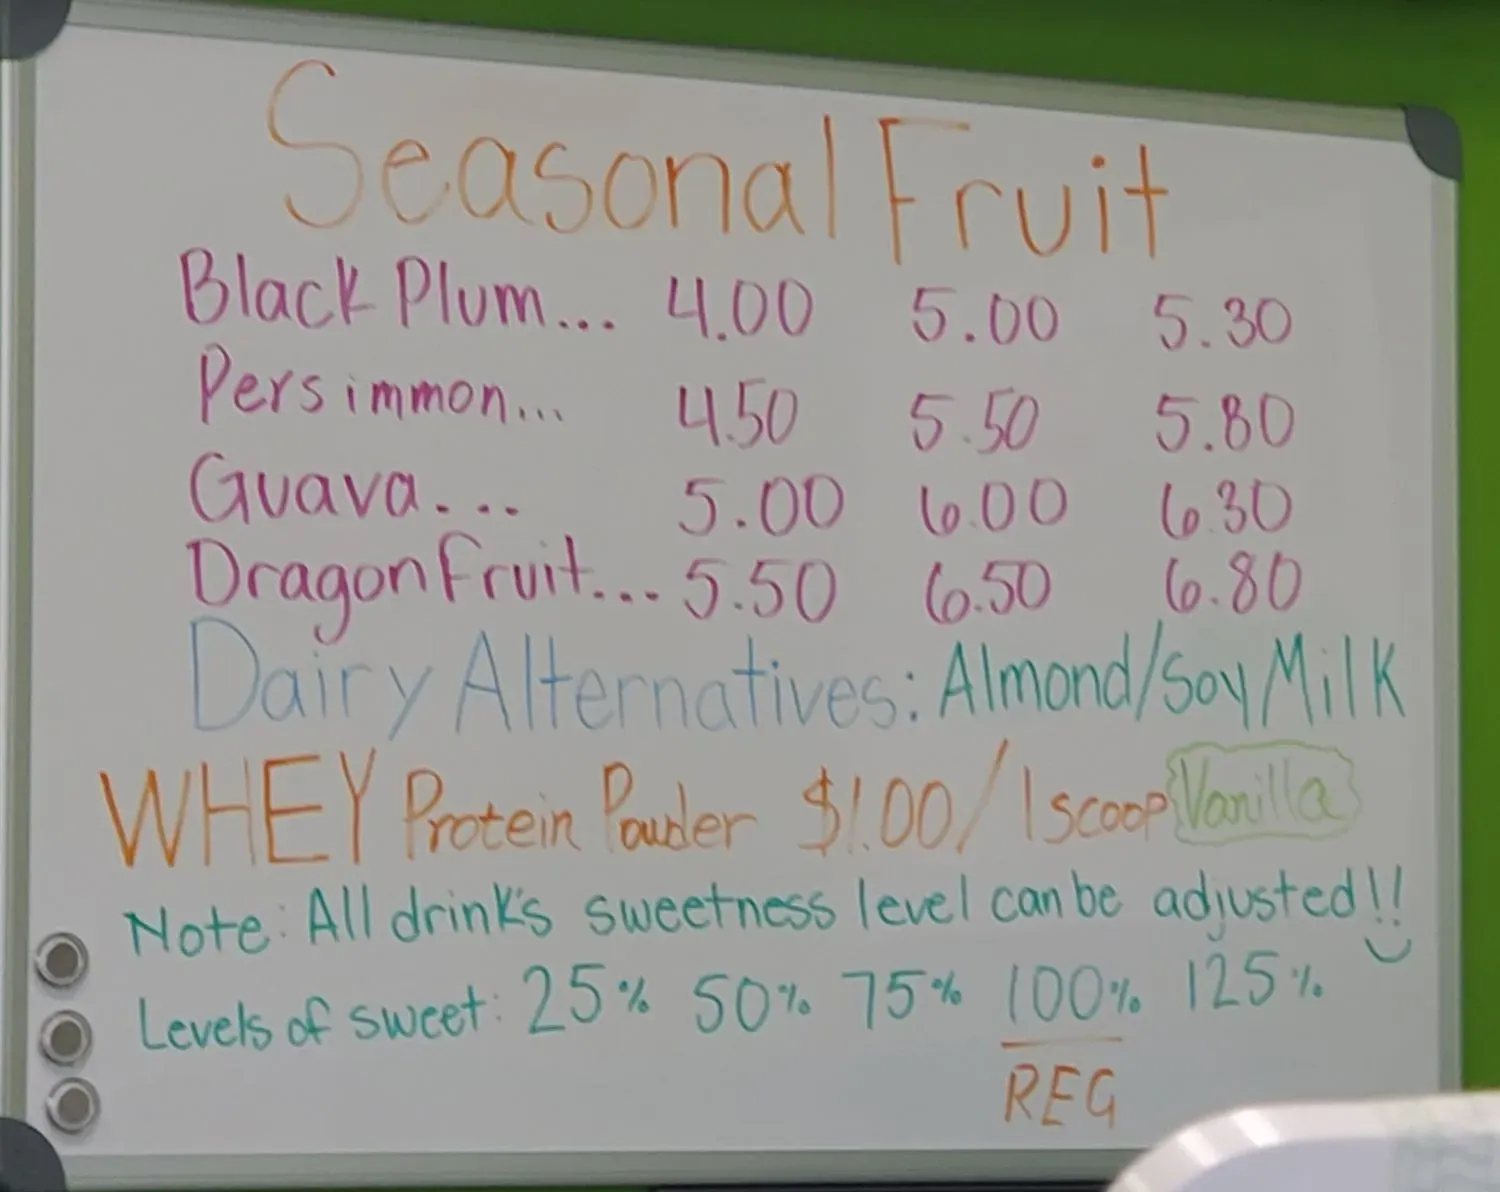 Seasonal Fruit
Black Plum... 4.00 5.00 5.30
Persimmon... 4.50 5.50 5.80
Guava... 5.00 6.00 6.30
Dragon fruit... 5.50 6.50 6.80
Dairy Alternatives: Almond/Soy Milk
WHEY Protein Powder $1.00/1 scoop Vanilla
Note: All drink's sweetness level can be adjusted!!
Levels of sweet: 25% 50% 75% 100% 125%
REG